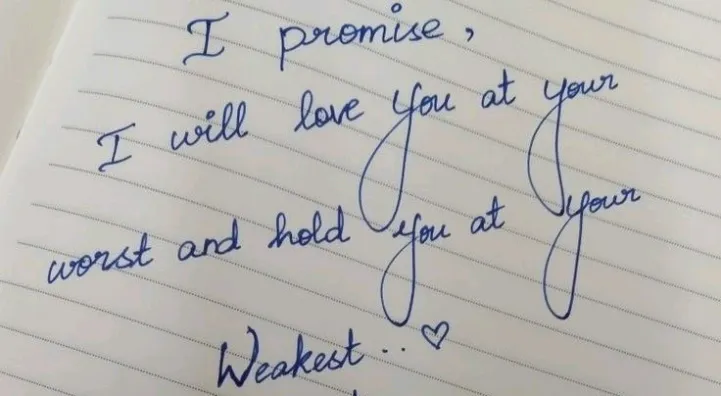 I promise,
I will love you at your
worst and hold you at your
Weakest.. ♡